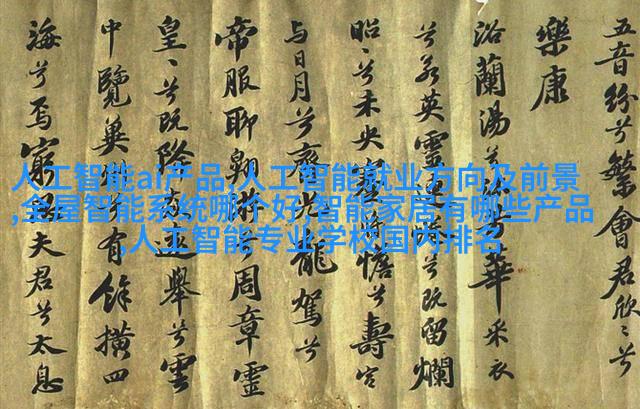 五音紛兮繁會君欣〻兮
樂康
浴蘭湯兮華采衣
兮若英靈兮既留爛
昭〻兮未央憺兮壽宮
与日月兮齊龍駕兮
帝服聊翱周章靈
皇〻兮既降舉兮雲
中覽冀有餘橫四
海兮焉窮夫君兮太息
人工智能ai产品,人工智能就业方向及前景
,全屋智能系统哪个好,智能家居有哪些产品
,人工智能专业学校国内排名